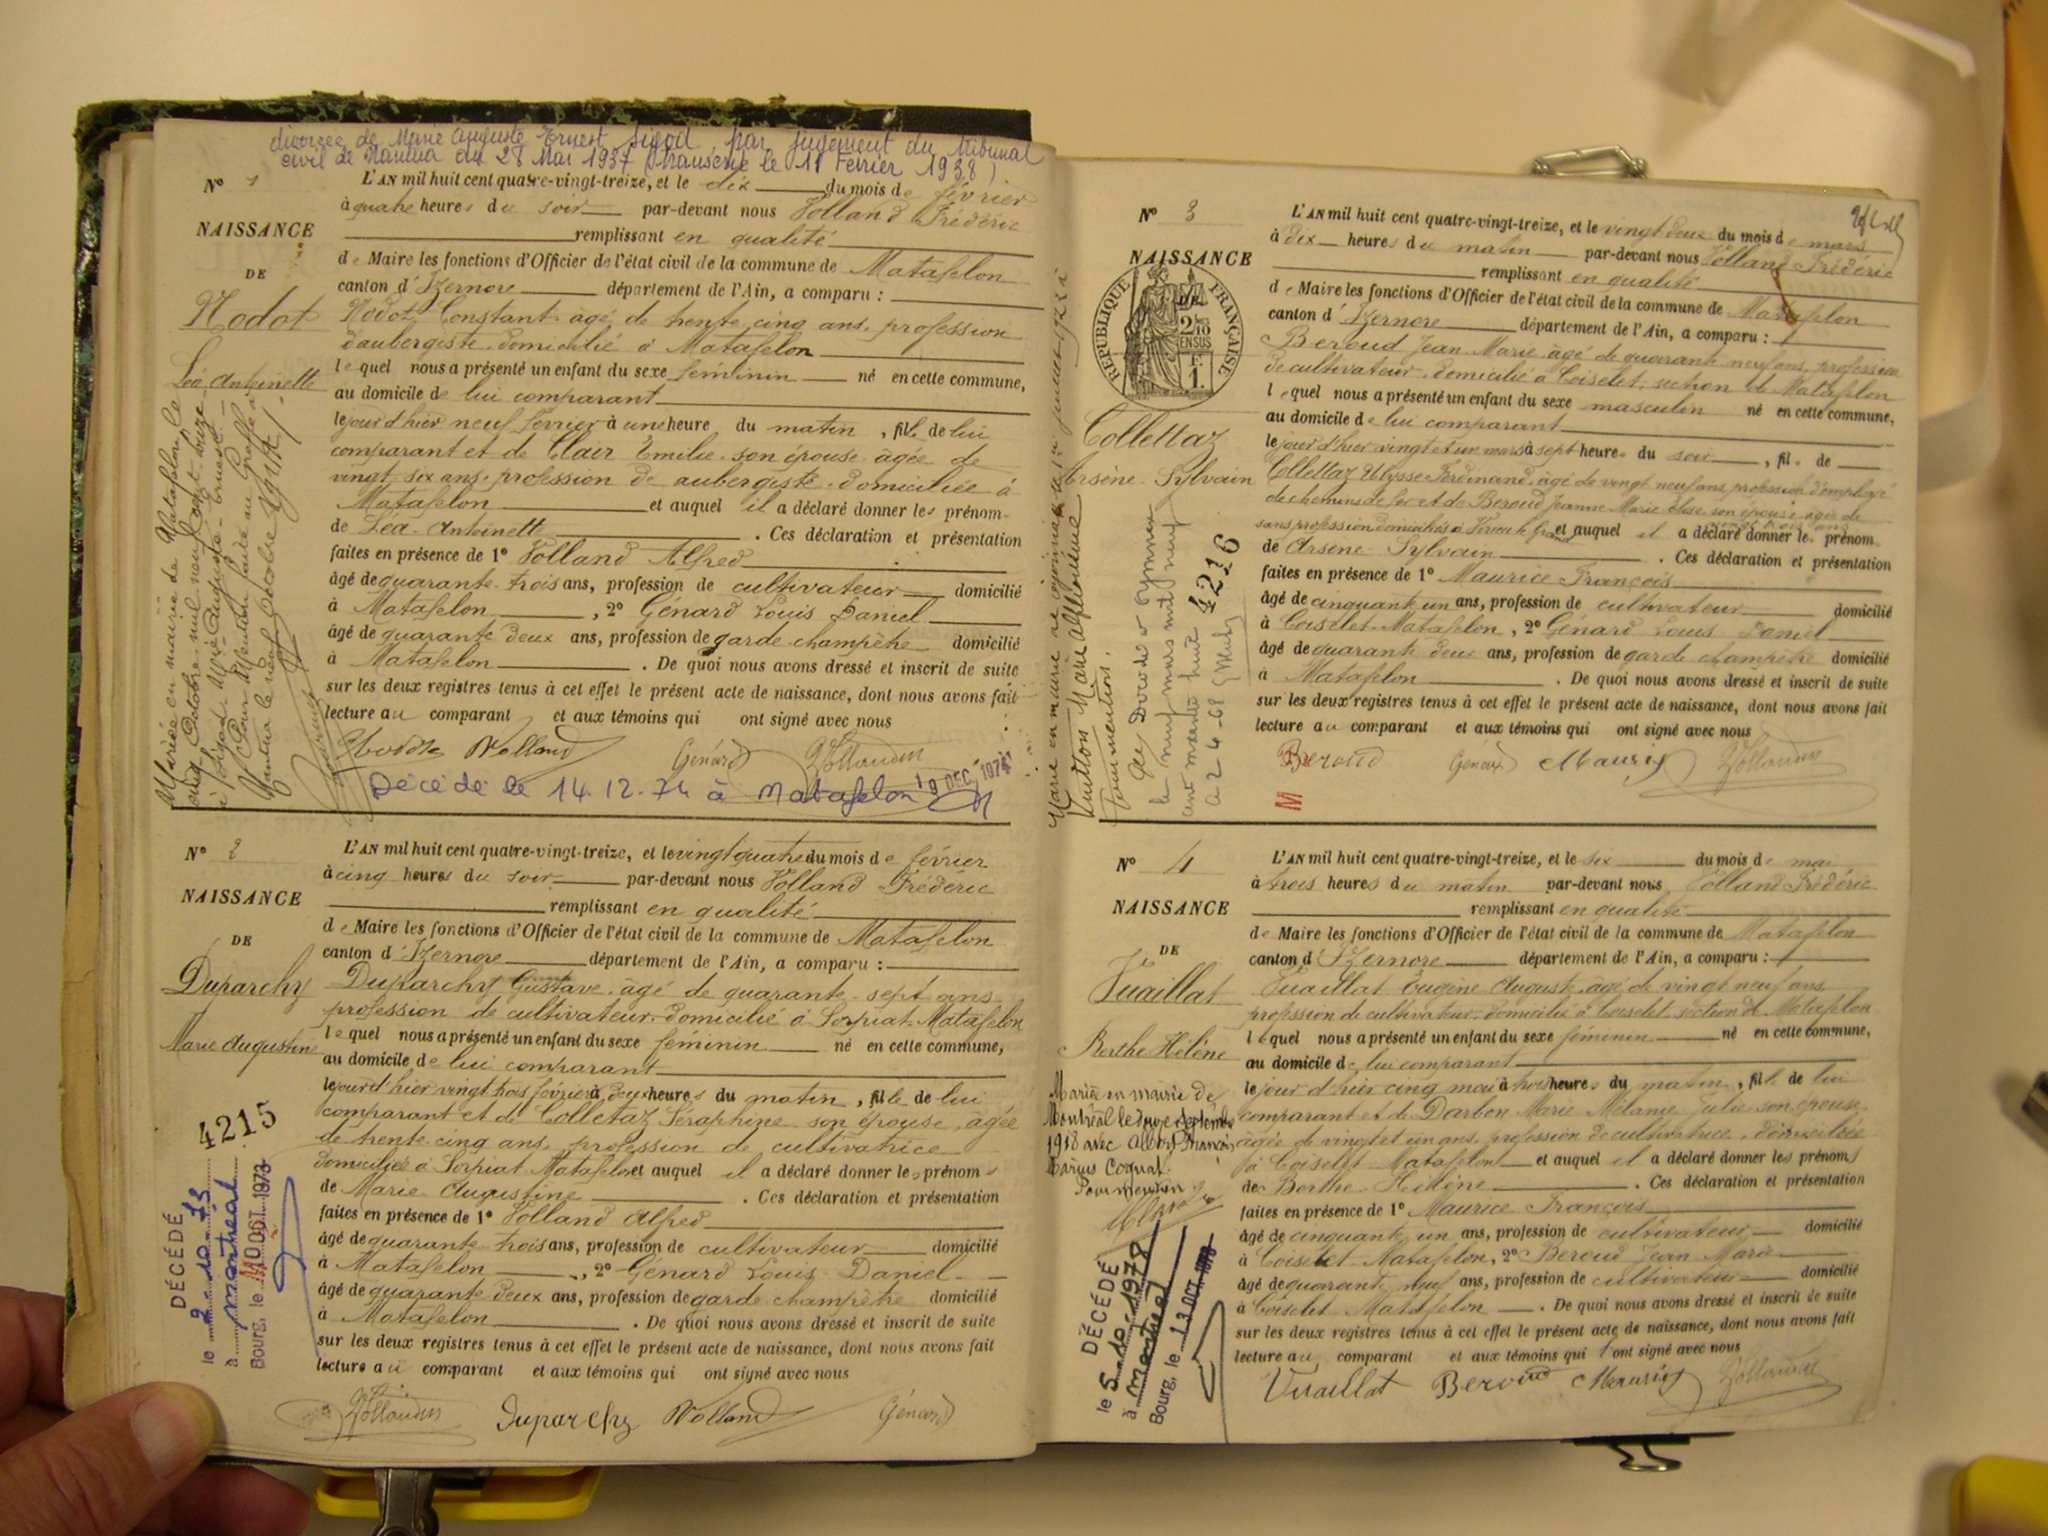 divorcée de Marie Auguste Ernest Sigod par jugement du Tribunal
civil de Nantua du 28 Mai 1937 (transcrit le 11 Février 1938)
N° 1
NAISSANCE
DE
Nodot
Léa Antoinette
L'AN mil huit cent quatre-vingt-treize, et le dix du mois de février
à quatre heures du soir par-devant nous Volland Frédéric
remplissant en qualité
de Maire les fonctions d'Officier de l'état civil de la commune de Matafelon
canton d'Izernore département de l'Ain, a comparu :
Nodot Constant âgé de trente cinq ans, profession
d'aubergiste domicilié à Matafelon
lequel nous a présenté un enfant du sexe féminin né en cette commune,
au domicile de lui comparant
le jour d'hier neuf février à une heure du matin, fille de lui
comparant et de Clair Emilie son épouse âgée de
vingt six ans, profession de aubergiste domiciliée à
Matafelon et auquel il a déclaré donner les prénom
de Léa Antoinette . Ces déclaration et présentation
faites en présence de 1° Volland Alfred
âgé de quarante trois ans, profession de cultivateur domicilié
à Matafelon, 2° Génard Louis Daniel
âgé de quarante deux ans, profession de garde champêtre domicilié
à Matafelon . De quoi nous avons dressé et inscrit de suite
sur les deux registres tenus à cet effet le présent acte de naissance, dont nous avons fait
lecture au comparant et aux témoins qui ont signé avec nous
Nodot Volland Génard Vollandfr
Mariée en mairie de Matafelon le
Octobre mil neuf cent treize
Marie Auguste Ernest
Pour Mention faite au Greffe à
Nantua le neuf Octobre
Décédé le 14.12.74 à Matafelon 19 DEC 1974
N° 2
NAISSANCE
DE
Duparchy
Marie Augustine
L'AN mil huit cent quatre-vingt-treize, et le vingt quatre du mois de février
à cinq heures du soir par-devant nous Volland Frédéric
remplissant en qualité
de Maire les fonctions d'Officier de l'état civil de la commune de Matafelon
canton d'Izernore département de l'Ain, a comparu :
Duparchy Gustave âgé de quarante sept ans
profession de cultivateur domicilié à Sorpiat Matafelon
lequel nous a présenté un enfant du sexe féminin né en cette commune,
au domicile de lui comparant
le jour d'hier vingt trois février à deux heures du matin, fille de lui
comparant et de Colletaz Séraphine son épouse, âgée
de trente cinq ans, profession de cultivatrice
domiciliée à Sorpiat Matafelon et auquel il a déclaré donner les prénoms
de Marie Augustine . Ces déclaration et présentation
faites en présence de 1° Volland Alfred
âgé de quarante trois ans, profession de cultivateur domicilié
à Matafelon, 2° Génard Louis Daniel
âgé de quarante deux ans, profession de garde champêtre domicilié
à Matafelon . De quoi nous avons dressé et inscrit de suite
sur les deux registres tenus à cet effet le présent acte de naissance, dont nous avons fait
lecture au comparant et aux témoins qui ont signé avec nous
Vollandfr Duparchy Volland Génard
4215
DÉCÉDÉ
le 2.10.73
à montréal
Bourg, le 10 OCT. 1973
N° 3
NAISSANCE
DE
RÉPUBLIQUE FRANÇAISE
2/10 EN SUS
1 F
Collettaz
Arsène Sylvain
L'AN mil huit cent quatre-vingt-treize, et le vingt deux du mois de mars
à dix heures du matin par-devant nous Volland Frédéric
remplissant en qualité
de Maire les fonctions d'Officier de l'état civil de la commune de Matafelon
canton d'Izernore département de l'Ain, a comparu :
Beroud Jean Marie âgé de quarante neuf ans, profession
de cultivateur, domicilié à Coiselet, section de Matafelon
lequel nous a présenté un enfant du sexe masculin né en cette commune,
au domicile de lui comparant
le jour d'hier vingt et un mars à sept heures du soir, fils de
Collettaz Ulysse Ferdinand, âgé de vingt neuf ans, profession d'employé
de chemins de fer et de Beroud Jeanne Marie Elise son épouse âgée de
sans profession domiciliés à et auquel il a déclaré donner les prénom
de Arsène Sylvain . Ces déclaration et présentation
faites en présence de 1° Maurice François
âgé de cinquante un ans, profession de cultivateur domicilié
à Coiselet Matafelon, 2° Génard Louis Daniel
âgé de quarante deux ans, profession de garde champêtre domicilié
à Matafelon . De quoi nous avons dressé et inscrit de suite
sur les deux registres tenus à cet effet le présent acte de naissance, dont nous avons fait
lecture au comparant et aux témoins qui ont signé avec nous
Beroud Génard Maurice Vollandfr
M
Marié en mairie de
Marie Philomène
Pour mention.
Décédé à Oyonnax
le neuf mars mil neuf
cent soixante huit
4216
N° 4
NAISSANCE
DE
Vuaillat
Berthe Hélène
L'AN mil huit cent quatre-vingt-treize, et le six du mois de mai
à trois heures du matin par-devant nous Volland Frédéric
remplissant en qualité
de Maire les fonctions d'Officier de l'état civil de la commune de Matafelon
canton d'Izernore département de l'Ain, a comparu :
Vuaillat Eugène Auguste, âgé de vingt neuf ans
profession de cultivateur, domicilié à Coiselet section de Matafelon
lequel nous a présenté un enfant du sexe féminin né en cette commune,
au domicile de lui comparant
le jour d'hier cinq mai à trois heures du matin, fille de lui
comparant et de Darbon Marie Mélanie Julie son épouse
âgée de vingt et un ans, profession de cultivatrice, domiciliée
à Coiselet Matafelon et auquel il a déclaré donner les prénoms
de Berthe Hélène . Ces déclaration et présentation
faites en présence de 1° Maurice François
âgé de cinquante un ans, profession de cultivateur domicilié
à Coiselet Matafelon, 2° Beroud Jean Marie
âgé de quarante neuf ans, profession de cultivateur domicilié
à Coiselet Matafelon . De quoi nous avons dressé et inscrit de suite
sur les deux registres tenus à cet effet le présent acte de naissance, dont nous avons fait
lecture au comparant et aux témoins qui ont signé avec nous
Vuaillat Beroud Maurice Vollandfr
Mariée en mairie de
Montréal le onze septembre
1918 avec Albert François
Marius Cognat.
Pour mention
DÉCÉDÉ
le 5.10.1978
à montréal
Bourg, le 13 OCT. 1978